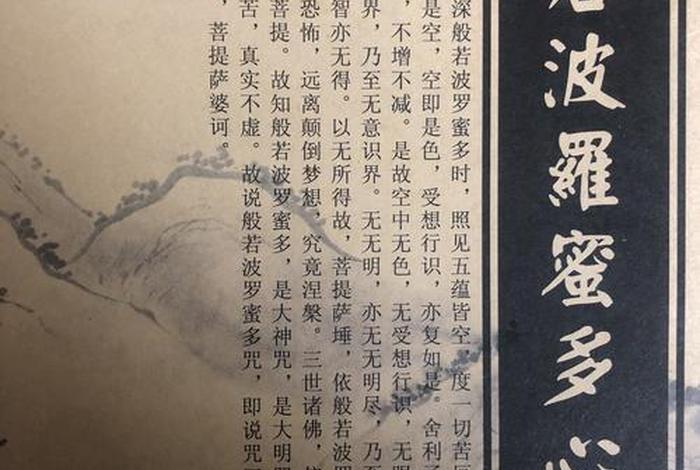 若波羅蜜多心
深般若波罗蜜多时，照见五蕴皆空，度一切苦厄
是空，空即是色，受想行识，亦复如是。舍利子
，不增不减。是故空中无色，无受想行识，无眼
界，乃至无意识界。无无明，亦无无明尽，乃至
智亦无得。以无所得故，菩提萨埵，依般若波罗
恐怖，远离颠倒梦想，究竟涅槃。三世诸佛，
菩提。故知般若波罗蜜多，是大神咒，是大明咒
苦，真实不虚。故说般若波罗蜜多咒，即说咒
，菩提萨婆诃。